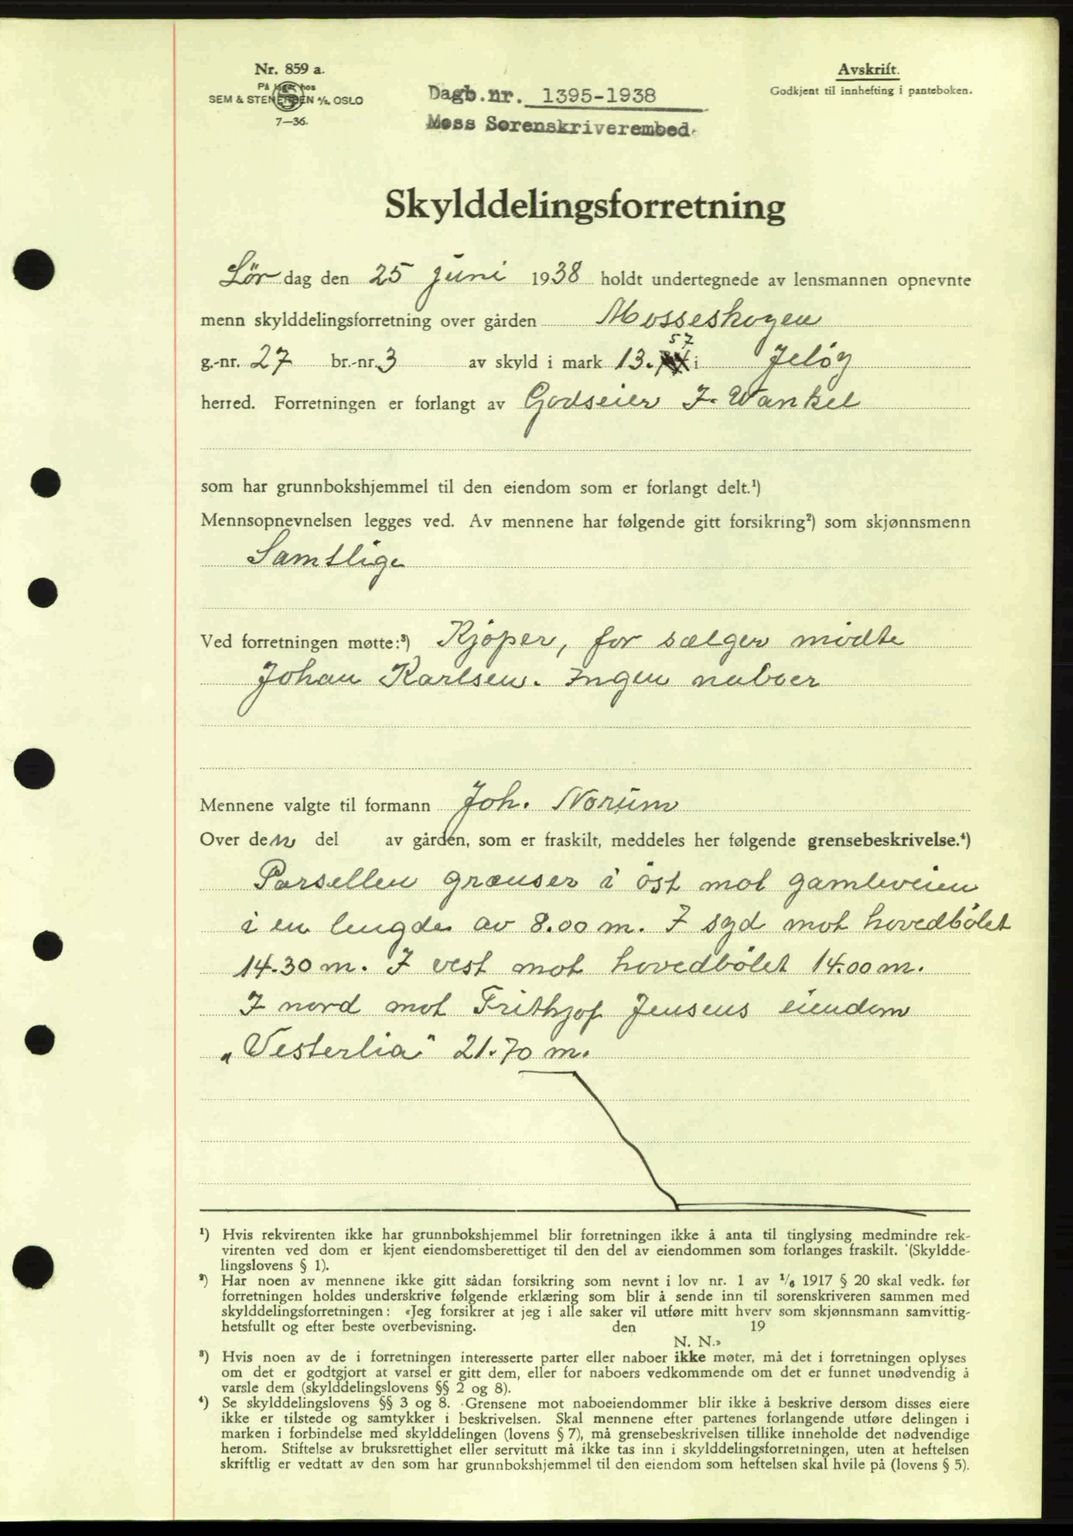 Nr. 859 a.
På lager hos
SEM & STENERSEN A/S. OSLO
7—36.
Dagb.nr. 1395-1938
Moss Sorenskriverembed.
Avskrift.
Godkjent til innhefting i panteboken.
Skylddelingsforretning
Lør dag den 25 juni 1938 holdt undertegnede av lensmannen opnevnte
menn skylddelingsforretning over gården Mosseskogen
57
g.-nr. 27 br.-nr. 3 av skyld i mark 13. i Jeløy
herred. Forretningen er forlangt av Godseier I. Wankel
som har grunnbokshjemmel til den eiendom som er forlangt delt.¹)
Mennsopnevnelsen legges ved. Av mennene har følgende gitt forsikring²) som skjønnsmenn
Samtlige
Ved forretningen møtte:³) Kjøper, for sælger mødte
Johan Karlsen. Ingen naboer
Mennene valgte til formann Joh. Norum
Over den del av gården, som er fraskilt, meddeles her følgende grensebeskrivelse.⁴)
Parsellen grænser i öst mot gamleveien
i en lengde av 8.00 m. I syd mot hovedbølet
14.30 m. I vest mot hovedbølet 14.00 m.
I nord mot Frithjof Jensens eiendom
„Vesterlia" 21.70 m.
¹) Hvis rekvirenten ikke har grunnbokshjemmel blir forretningen ikke å anta til tinglysing medmindre rek-
virenten ved dom er kjent eiendomsberettiget til den del av eiendommen som forlanges fraskilt. (Skyldde-
lingslovens § 1).
²) Har noen av mennene ikke gitt sådan forsikring som nevnt i lov nr. 1 av ¹/₆ 1917 § 20 skal vedk. før
forretningen holdes underskrive følgende erklæring som blir å sende inn til sorenskriveren sammen med
skylddelingsforretningen: «Jeg forsikrer at jeg i alle saker vil utføre mitt hverv som skjønnsmann samvittig-
hetsfullt og efter beste overbevisning. den 19
N. N.»
³) Hvis noen av de i forretningen interesserte parter eller naboer ikke møter, må det i forretningen oplyses
om det er godtgjort at varsel er gitt dem, eller for naboers vedkommende om det er funnet unødvendig å
varsle dem (skylddelingslovens §§ 2 og 8).
⁴) Se skylddelingslovens §§ 3 og 8. Grensene mot naboeiendommer blir ikke å beskrive dersom disses eiere
ikke er tilstede og samtykker i beskrivelsen. Skal mennene efter partenes forlangende utføre delingen i
marken i forbindelse med skylddelingen (lovens § 7), må grensebeskrivelsen tillike inneholde det nødvendige
herom. Stiftelse av bruksrettighet eller servitutt må ikke tas inn i skylddelingsforretningen, uten at heftelsen
skriftlig er vedtatt av den som har grunnbokshjemmel til den eiendom som heftelsen skal hvile på (lovens § 5).